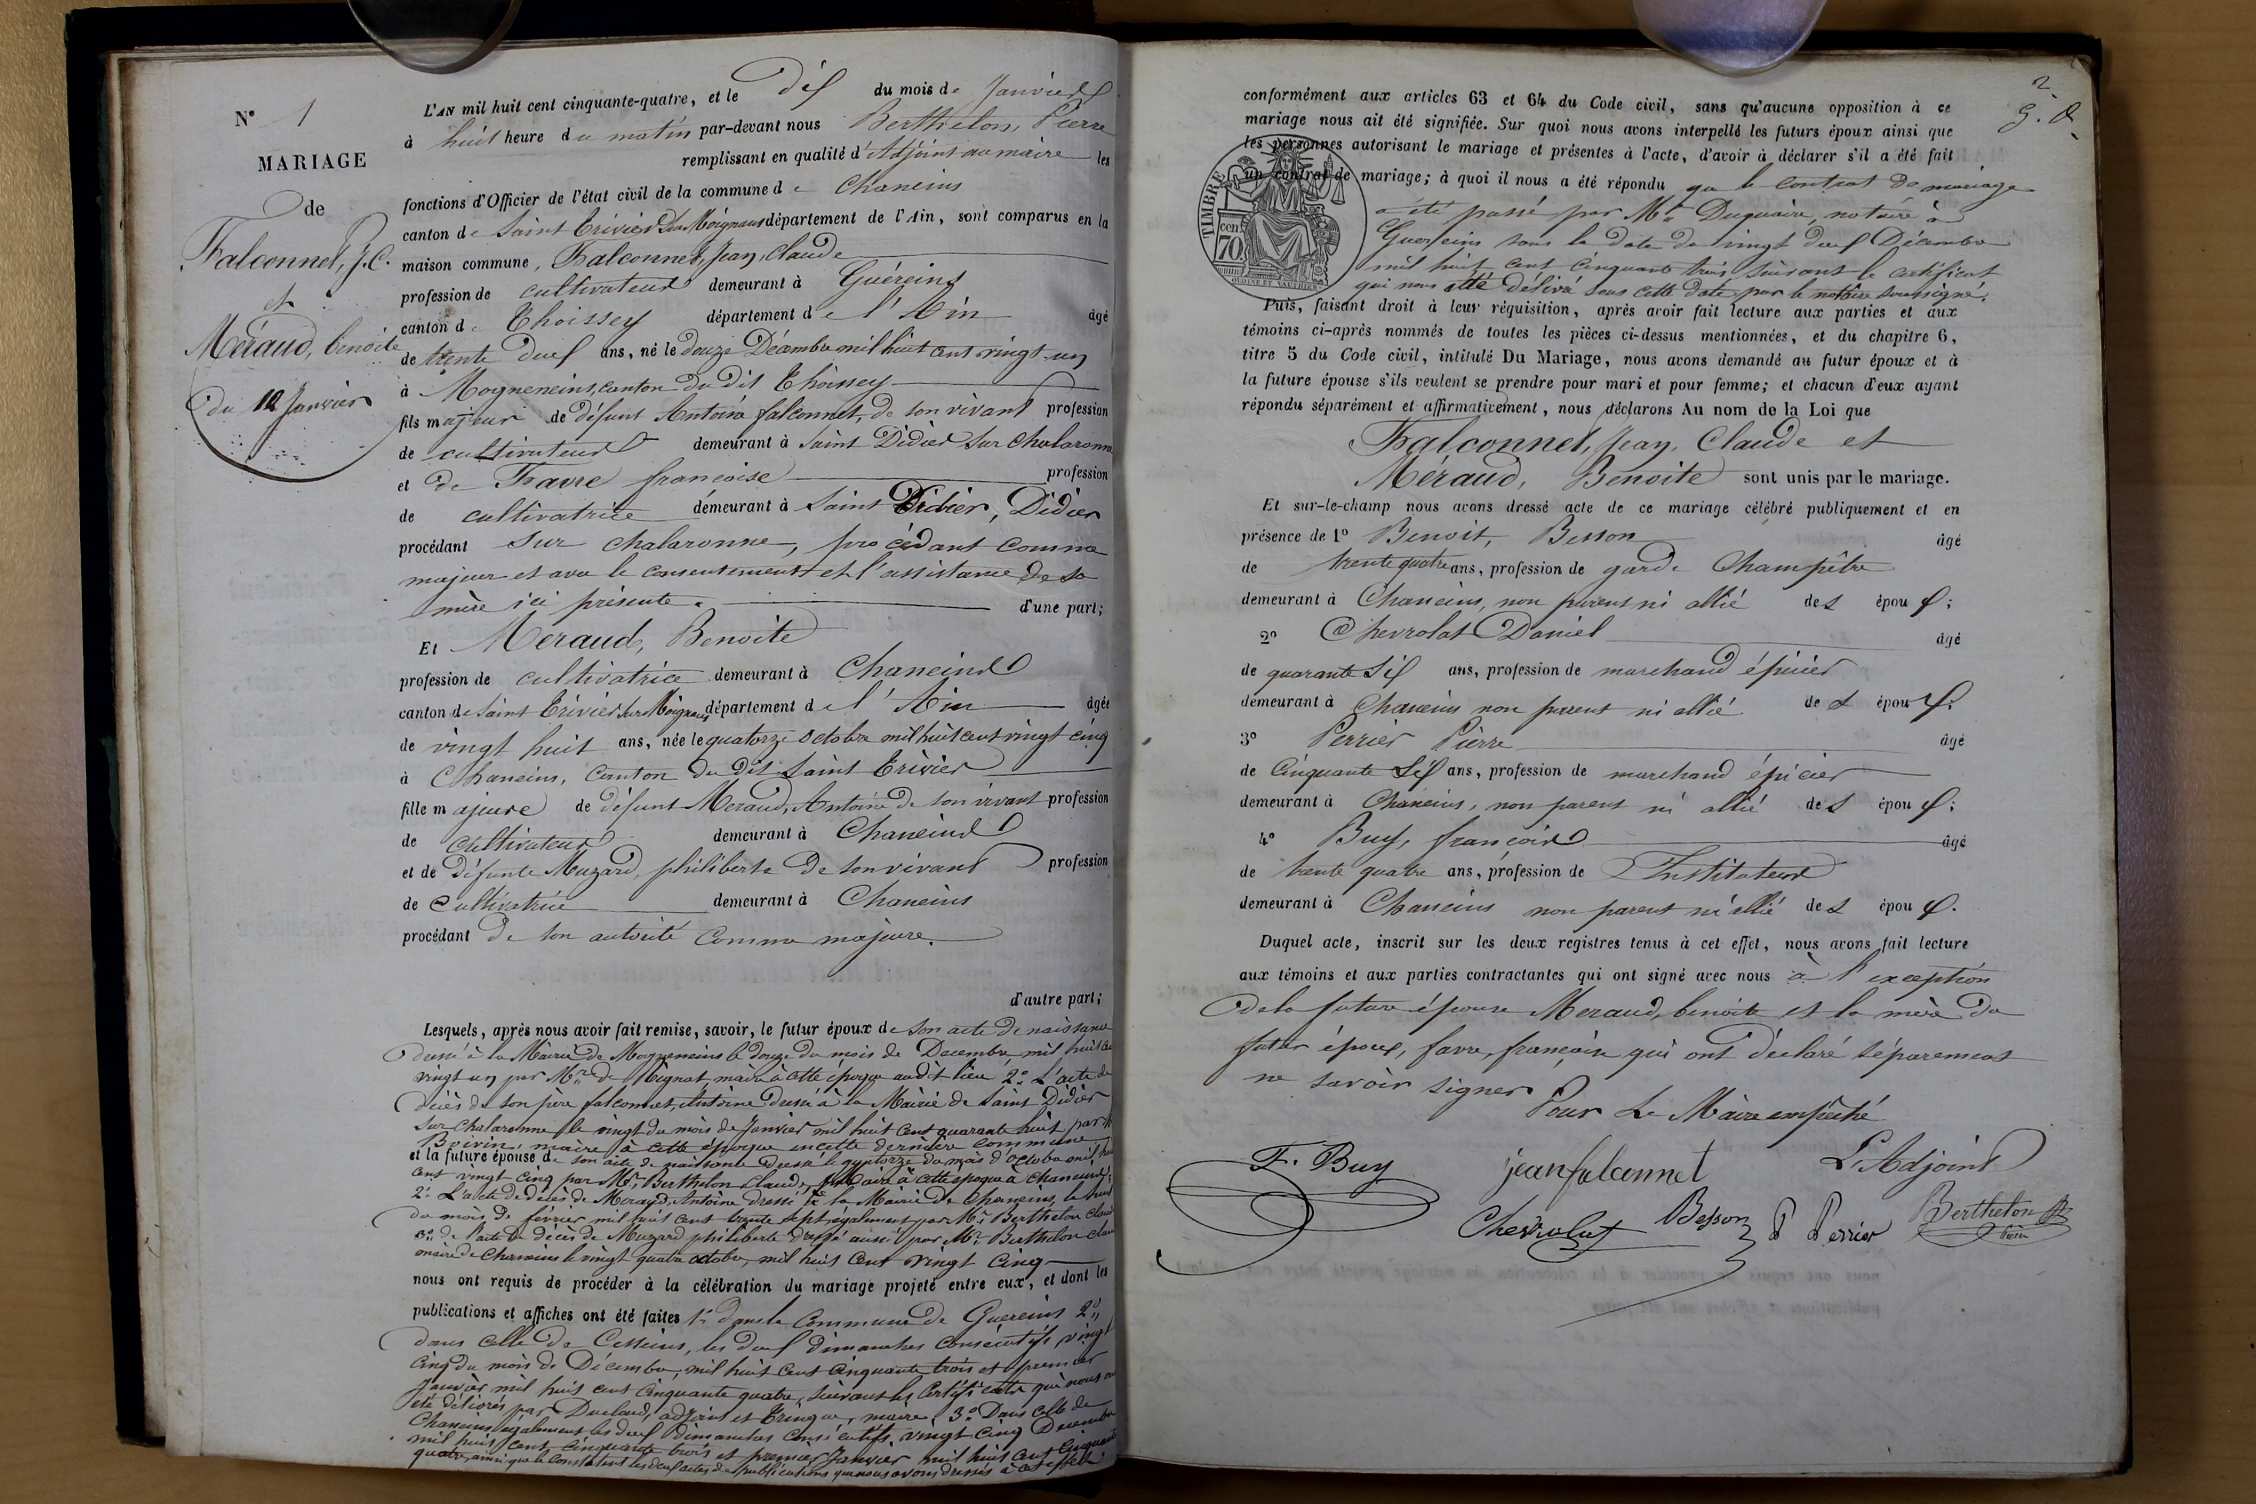 N° 1
MARIAGE
de
Falconnet, J. C.
et
Méraud, benoite
du 12 Janvier
L'AN mil huit cent cinquante-quatre, et le dix du mois de Janvier
à huit heure du matin par-devant nous Berthelon, Pierre
remplissant en qualité d'Adjoint au maire les
fonctions d'Officier de l'état civil de la commune de Chaneins
canton de Saint Trivier Sur Moignans département de l'Ain, sont comparus en la
maison commune, Falconnet, Jean, Claude
profession de cultivateur demeurant à Guéreins
canton de Thoissey département de l'Ain âgé
de trente deux ans, né le douze Décembre mil huit cent vingt un
à Mogneneins, canton du dit Thoissey
fils majeur de défunt Antoine falconnet, de son vivant profession
de cultivateur demeurant à Saint Didier sur chalaronne
et de Favre françoise profession
de cultivatrice demeurant à Saint Didier, Didier
procédant sur chalaronne, procédant comme
majeur et avec le consentement et l'assistance de sa
mère ici présente. d'une part;
Et Meraud, Benoite
profession de cultivatrice demeurant à Chaneins
canton de Saint Trivier Sur Moignans département de l'Ain âgée
de vingt huit ans, née le quatorze octobre mil huit cent vingt cinq
à Chaneins, canton du dit Saint Trivier
fille majeure de défunt Meraud, Antoine de son vivant profession
de cultivateur demeurant à Chaneins
et de défunte Muzard, philiberte de son vivant profession
de cultivatrice demeurant à Chaneins
procédant de son autorité comme majeure.
d'autre part;
Lesquels, après nous avoir fait remise, savoir, le futur époux de son acte de naissance
dressé à la Mairie de Mogneneins le douze du mois de Decembre mil huit cent
vingt un par Mr de Mignot, maire à cette époque audit lieu 2° L'acte de
décès de son père falconnet, Antoine dressé à la Mairie de Saint Didier
sur chalaronne le vingt du mois de Janvier mil huit cent quarante huit par Mr
Boivin, maire à cette époque en cette dernière commune
et la future épouse de son acte de naissance dressé le quatorze du mois d'octobre mil huit
cent vingt cinq par Mr Berthelon Claude, maire à cette époque à Chaneins
2° L'acte de décès de Meraud, Antoine dressé à la Mairie de Chaneins le huit
du mois de février mil huit cent trente sept, également par Mr Berthelon claude
3° de l'acte de décès de Muzard philiberte dressé aussi par Mr Berthelon claude
maire de Chaneins le vingt quatre octobre, mil huit cent vingt cinq
nous ont requis de procéder à la célébration du mariage projeté entre eux, et dont les
publications et affiches ont été faites 1° dans la commune de Guereins 2°
dans celle de Cesseins, les deux dimanches consécutifs, vingt
cinq du mois de Décembre, mil huit cent cinquante trois et premier
Janvier mil huit cent cinquante quatre, suivant les certificats qui nous ont
été délivrés par Duclaud, adjoint et Tringue, maire 3° Dans celle de
Chaneins également les deux dimanches consécutifs vingt cinq Decembre
mil huit cent cinquante trois et premier Janvier mil huit cent cinquante
quatre, ainsi que le constatent les deux actes de publications que nous avons dressés à cet effet
2
conformément aux articles 63 et 64 du Code civil, sans qu'aucune opposition à ce
mariage nous ait été signifiée. Sur quoi nous avons interpellé les futurs époux ainsi que
les personnes autorisant le mariage et présentes à l'acte, d'avoir à déclarer s'il a été fait
un contrat de mariage; à quoi il nous a été répondu que le contrat de mariage
TIMBRE
70 cent.
a été passé par Mr Duquaire, notaire à
Guereins sous la date de vingt deux Décembre
mil huit cent cinquante trois suivant le certificat
qui nous a été délivré sous cette date par le notaire soussigné.
Puis, faisant droit à leur réquisition, après avoir fait lecture aux parties et aux
témoins ci-après nommés de toutes les pièces ci-dessus mentionnées, et du chapitre 6,
titre 5 du Code civil, intitulé Du Mariage, nous avons demandé au futur époux et à
la future épouse s'ils veulent se prendre pour mari et pour femme; et chacun d'eux ayant
répondu séparément et affirmativement, nous déclarons Au nom de la Loi que
Falconnet, Jean, Claude et
Méraud, Benoite sont unis par le mariage.
Et sur-le-champ nous avons dressé acte de ce mariage célébré publiquement et en
présence de 1° Benoit, Besson âgé
de trente quatre ans, profession de garde Champêtre
demeurant à Chaneins, non parent ni allié des époux;
2° Chevrolat Daniel âgé
de quarante six ans, profession de marchand épicier
demeurant à Chaneins non parent ni allié des époux;
3° Perrier Pierre âgé
de cinquante six ans, profession de marchand épicier
demeurant à Chaneins, non parent ni allié des époux;
4° Buy, françois âgé
de trente quatre ans, profession de Instituteur
demeurant à Chaneins non parent ni allié des époux.
Duquel acte, inscrit sur les deux registres tenus à cet effet, nous avons fait lecture
aux témoins et aux parties contractantes qui ont signé avec nous à l'exception
de la future épouse Meraud, benoite et la mère du
futur époux, favre, françoise qui ont déclaré séparement
ne savoir signer
Pour Le Maire empêché
F. Buy jean falconnet L'Adjoint
Chevrolat Besson P Perrier Berthelon